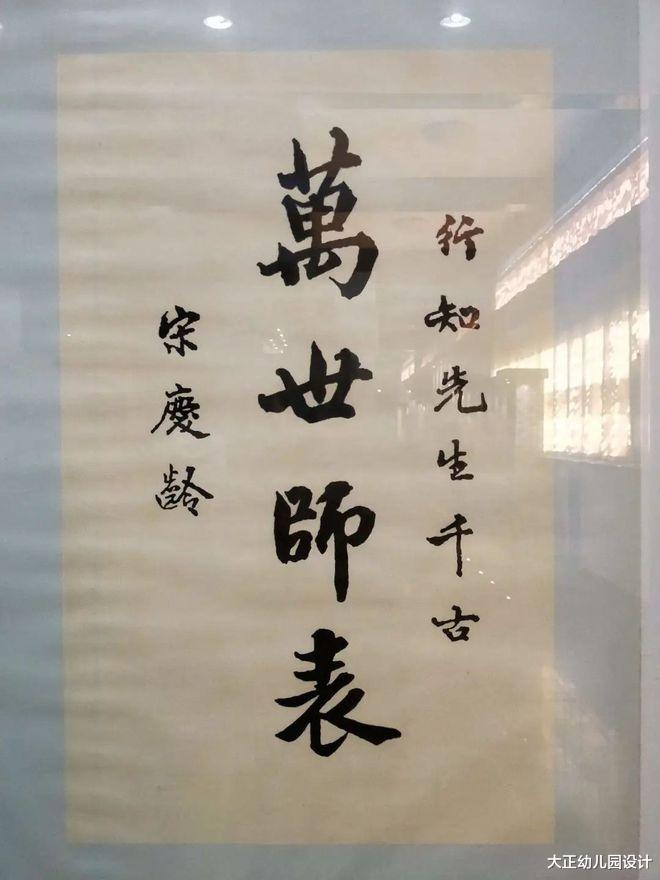 行知先生千古
萬世師表
宋慶齡
大正幼儿园设计